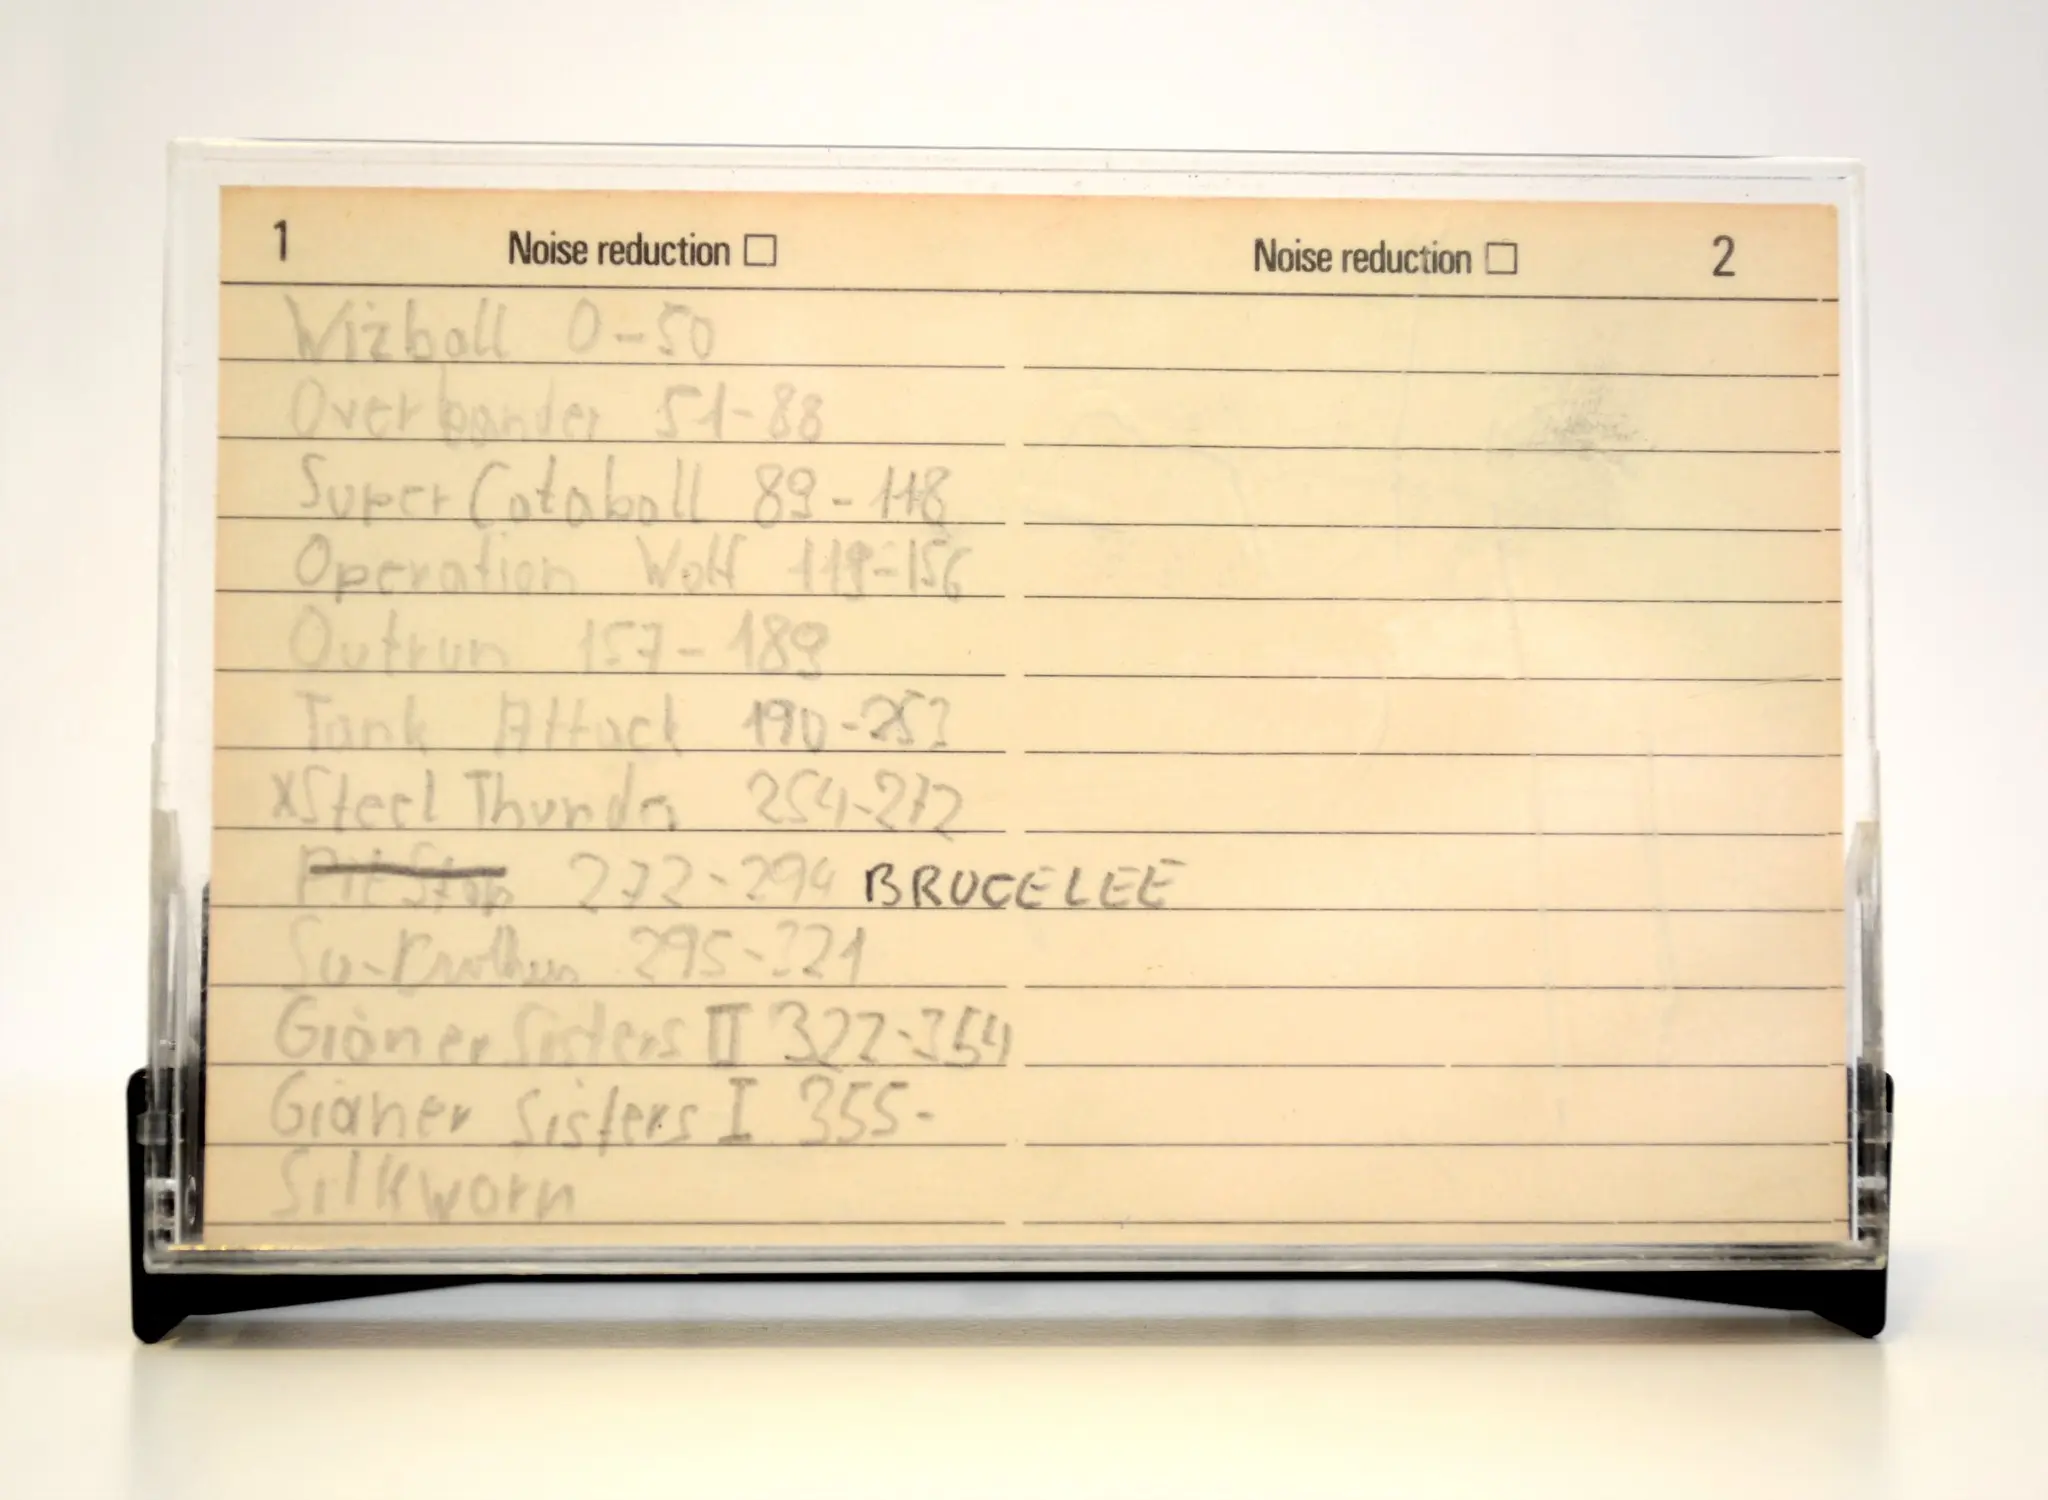 1 Noise reduction Noise reduction 2
Wizball 0-50
Overlander 51-88
Super Cataball 89-118
Operation Wolf 119-156
Outrun 157-189
Tank Attack 190-253
XSteel Thunder 254-272
PitStop 272-294 BRUCE LEE
295-321
Gianer Sisters II 322-354
Gianer Sisters I 355-
Silkworn